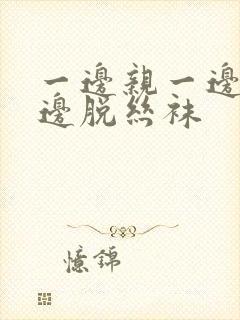 一邊親一邊
邊脫絲袜
憶錦